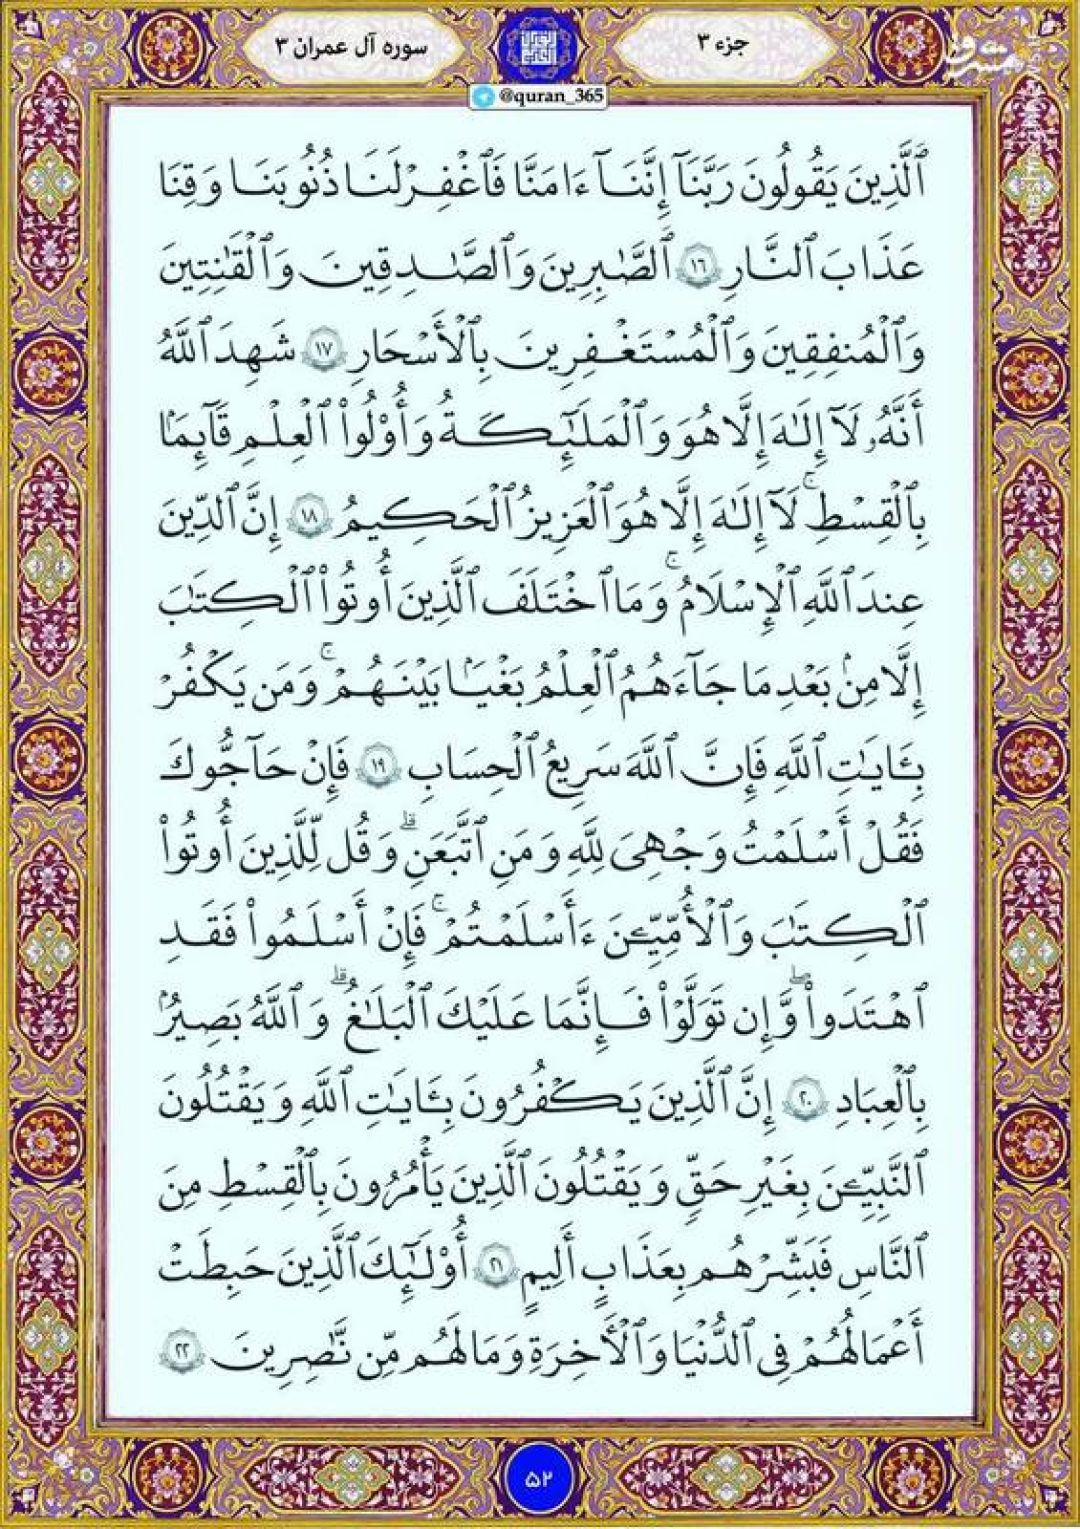 جزء ۳
سوره آل عمران ۳
@quran_365
ٱلَّذِينَ يَقُولُونَ رَبَّنَآ إِنَّنَآ ءَامَنَّا فَٱغْفِرْ لَنَا ذُنُوبَنَا وَقِنَا
عَذَابَ ٱلنَّارِ ١٦ ٱلصَّٰبِرِينَ وَٱلصَّٰدِقِينَ وَٱلْقَٰنِتِينَ
وَٱلْمُنفِقِينَ وَٱلْمُسْتَغْفِرِينَ بِٱلْأَسْحَارِ ١٧ شَهِدَ ٱللَّهُ
أَنَّهُۥ لَآ إِلَٰهَ إِلَّا هُوَ وَٱلْمَلَٰٓئِكَةُ وَأُو۟لُوا۟ ٱلْعِلْمِ قَآئِمَۢا
بِٱلْقِسْطِۚ لَآ إِلَٰهَ إِلَّا هُوَ ٱلْعَزِيزُ ٱلْحَكِيمُ ١٨ إِنَّ ٱلدِّينَ
عِندَ ٱللَّهِ ٱلْإِسْلَٰمُۗ وَمَا ٱخْتَلَفَ ٱلَّذِينَ أُوتُوا۟ ٱلْكِتَٰبَ
إِلَّا مِنۢ بَعْدِ مَا جَآءَهُمُ ٱلْعِلْمُ بَغْيَۢا بَيْنَهُمْۗ وَمَن يَكْفُرْ
بِـَٔايَٰتِ ٱللَّهِ فَإِنَّ ٱللَّهَ سَرِيعُ ٱلْحِسَابِ ١٩ فَإِنْ حَآجُّوكَ
فَقُلْ أَسْلَمْتُ وَجْهِىَ لِلَّهِ وَمَنِ ٱتَّبَعَنِۗ وَقُل لِّلَّذِينَ أُوتُوا۟
ٱلْكِتَٰبَ وَٱلْأُمِّيِّـۧنَ ءَأَسْلَمْتُمْۚ فَإِنْ أَسْلَمُوا۟ فَقَدِ
ٱهْتَدَوا۟ۖ وَّإِن تَوَلَّوْا۟ فَإِنَّمَا عَلَيْكَ ٱلْبَلَٰغُۗ وَٱللَّهُ بَصِيرُۢ
بِٱلْعِبَادِ ٢٠ إِنَّ ٱلَّذِينَ يَكْفُرُونَ بِـَٔايَٰتِ ٱللَّهِ وَيَقْتُلُونَ
ٱلنَّبِيِّـۧنَ بِغَيْرِ حَقٍّ وَيَقْتُلُونَ ٱلَّذِينَ يَأْمُرُونَ بِٱلْقِسْطِ مِنَ
ٱلنَّاسِ فَبَشِّرْهُم بِعَذَابٍ أَلِيمٍ ٢١ أُو۟لَٰٓئِكَ ٱلَّذِينَ حَبِطَتْ
أَعْمَٰلُهُمْ فِى ٱلدُّنْيَا وَٱلْأَخِرَةِ وَمَا لَهُم مِّن نَّٰصِرِينَ ٢٢
۵۲